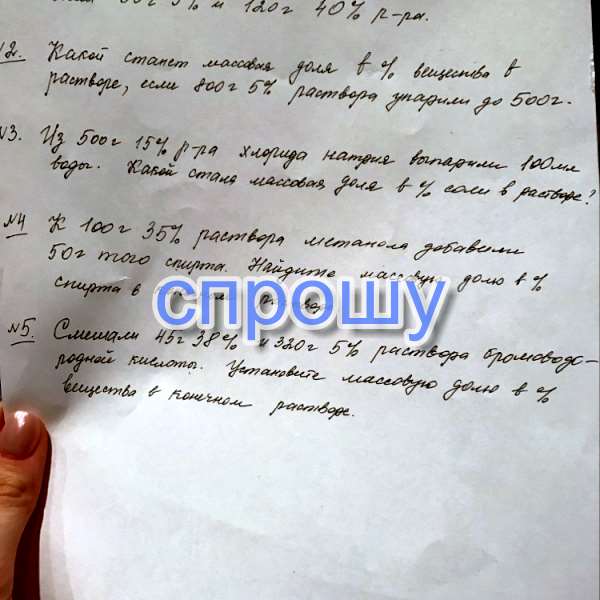 и 120г 40% р-ра.
№2. Какой станет массовая доля в % вещества в
растворе, если 800г 5% раствора упарили до 500г.
№3. Из 500г 15% р-ра хлорида натрия выпарили 100мл
воды. Какой стала массовая доля в % соли в растворе?
№4 К 100г 35% раствора метанола добавили
50г того спирта. Найдите массовую долю в %
спирта в
спрошу
№5. Смешали 45г 38% и 320г 5% раствора бромоводо-
родной кислоты. Установите массовую долю в %
вещества в конечном растворе.